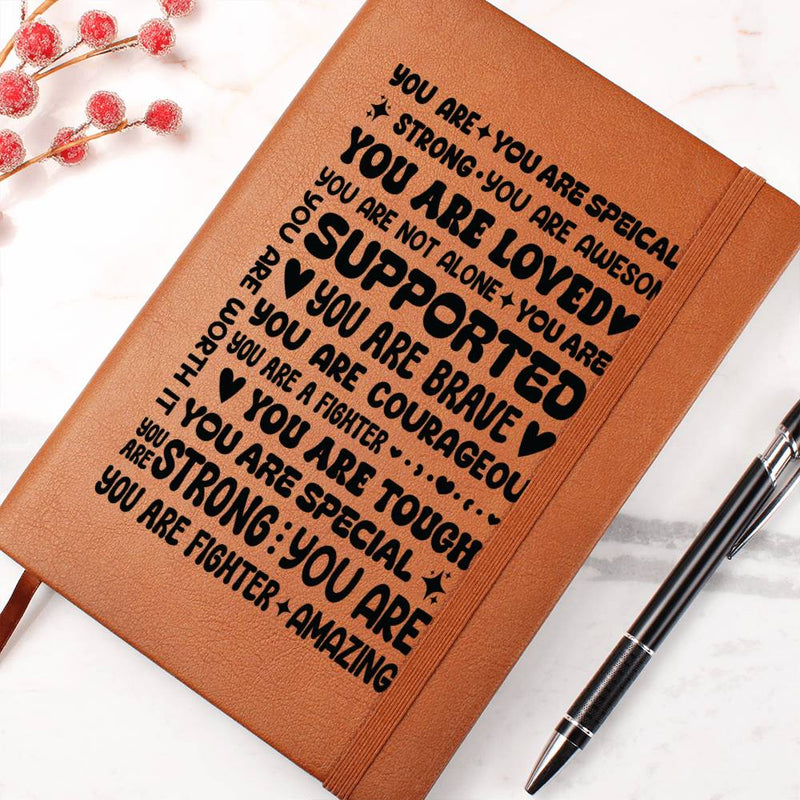 YOU ARE ✦ YOU ARE SPEICAL
✦ STRONG • YOU ARE AWESOM
YOU ARE LOVED ♥
YOU ARE NOT ALONE ✦ YOU ARE
SUPPORTED
YOU ARE WORTH IT
♥ YOU ARE BRAVE ♥
YOU ARE COURAGEOU
YOU ARE A FIGHTER
♥ YOU ARE TOUGH
YOU ARE SPECIAL ✦
YOU ARE STRONG: YOU ARE
YOU ARE FIGHTER ✦ AMAZING